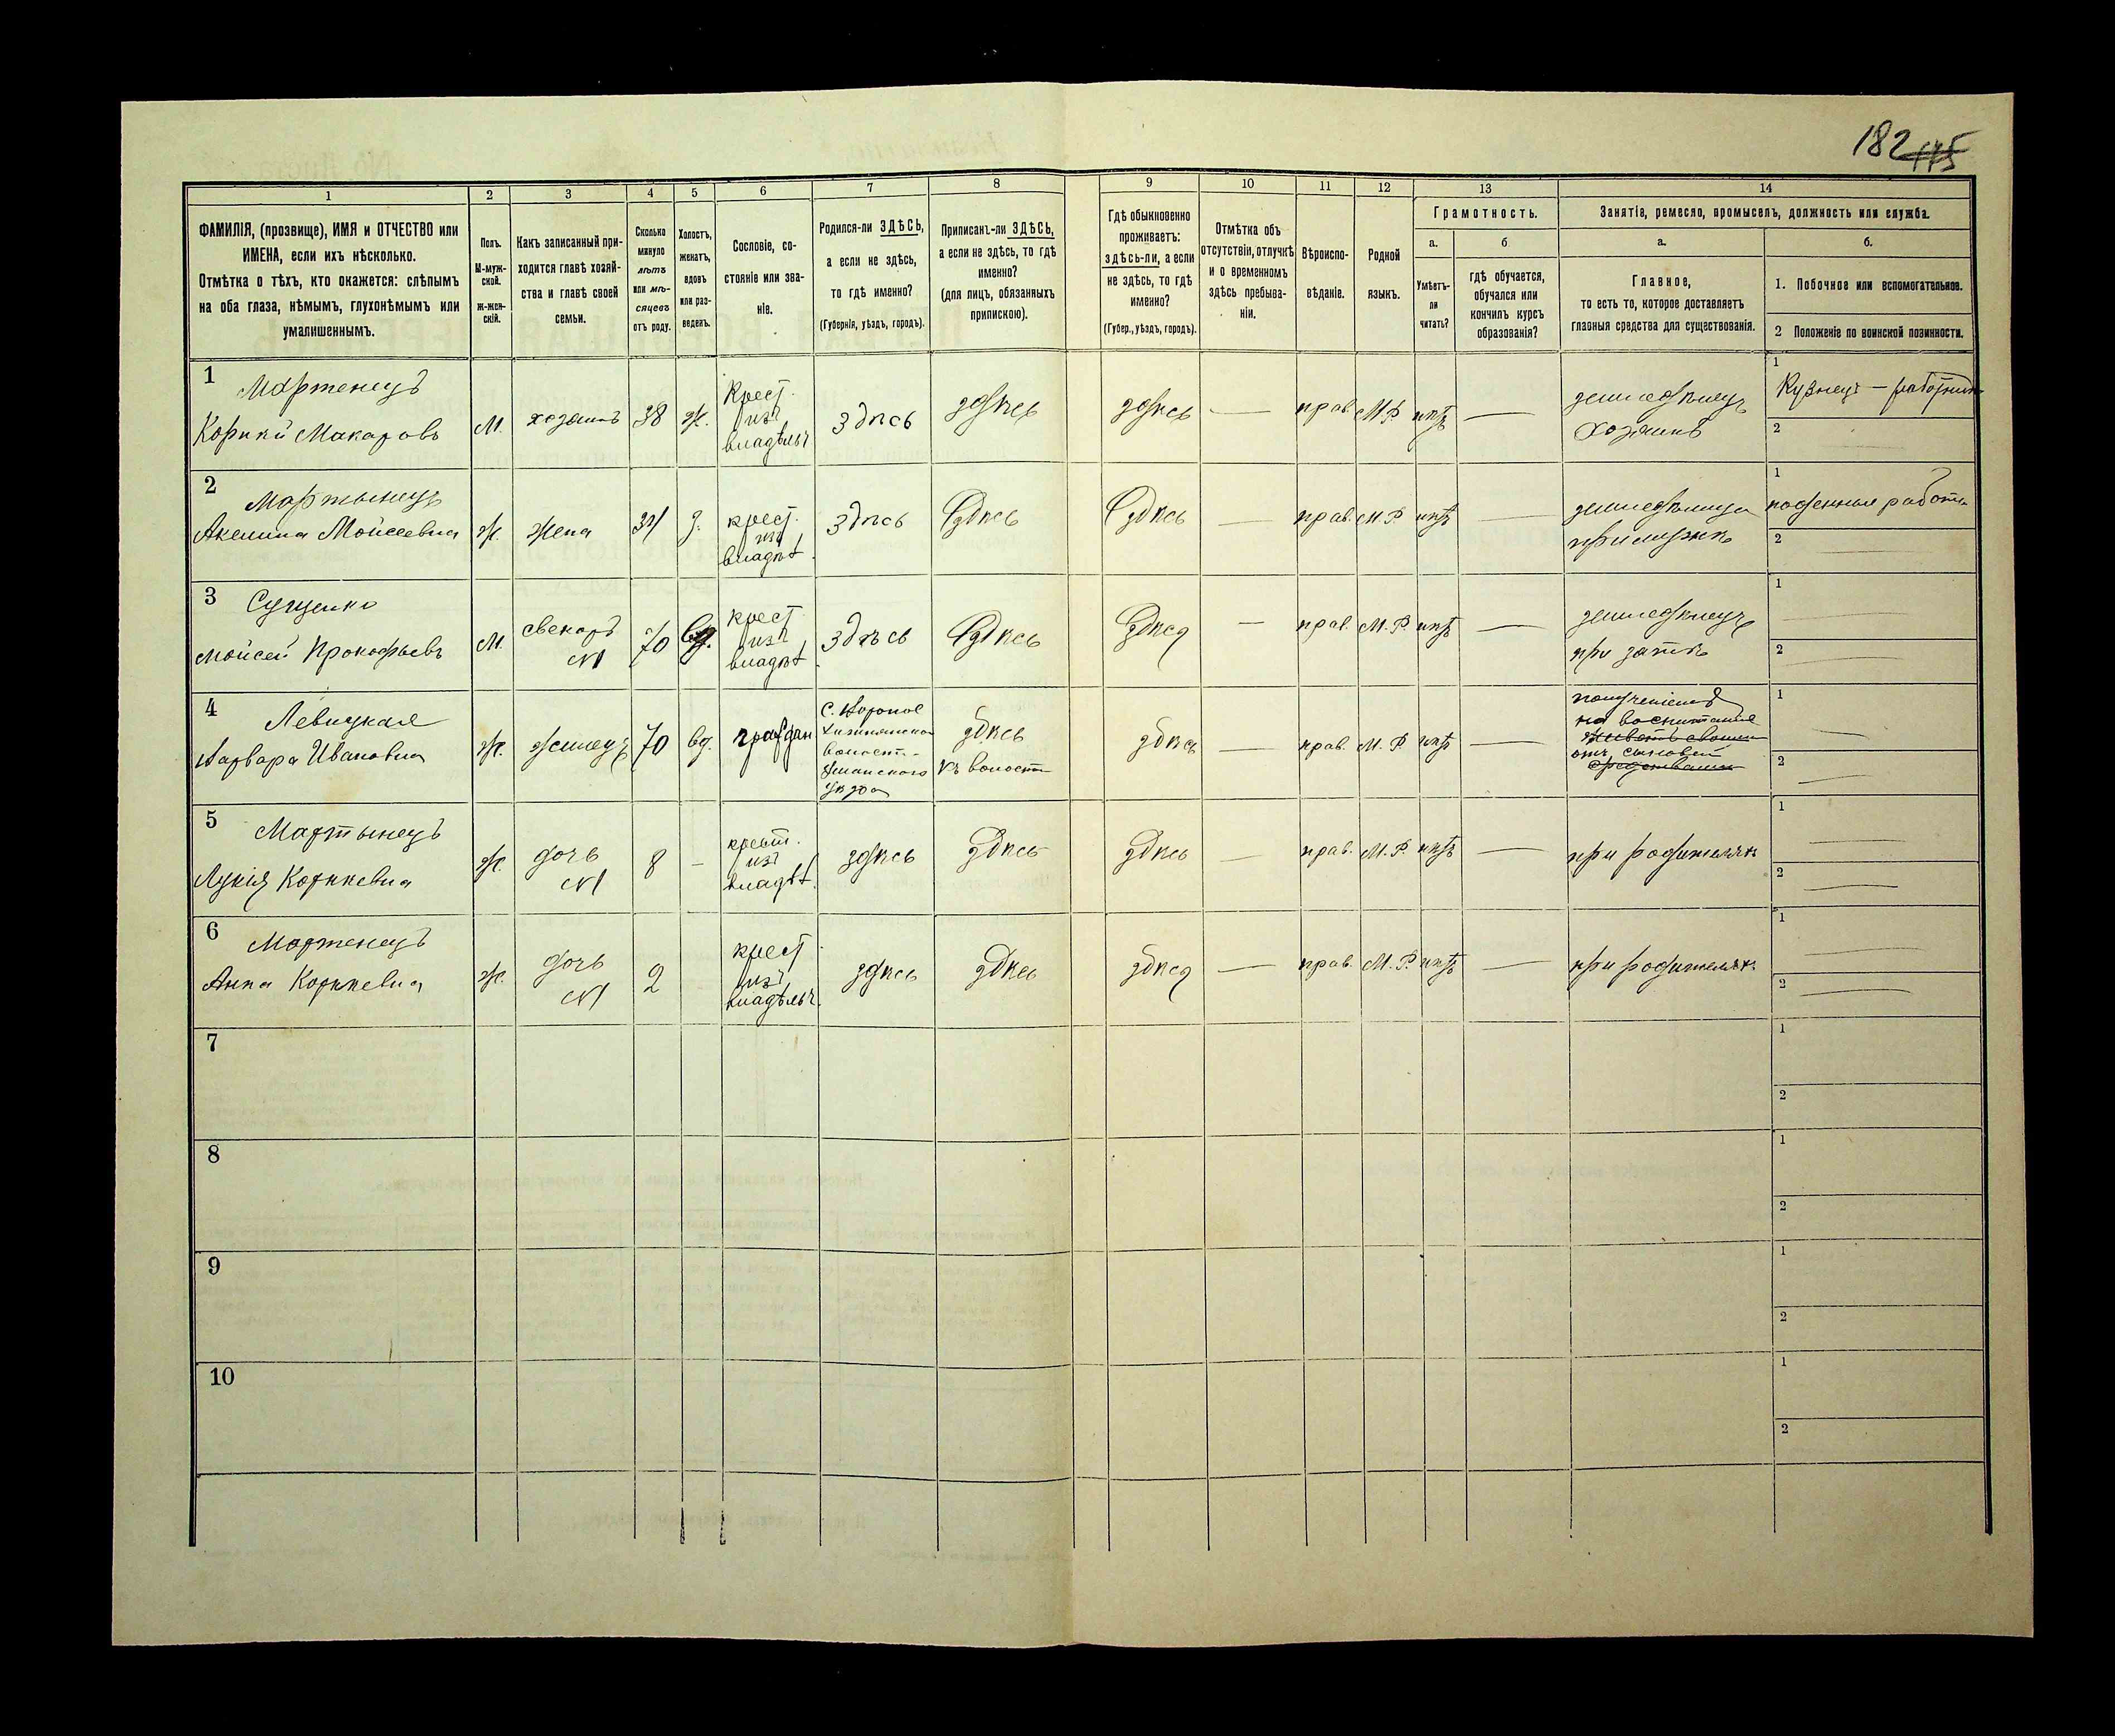 182 175
1 2 3 4 5 6 7 8 9 10 11 12 13 14
ФАМИЛІЯ, (прозвище), ИМЯ и ОТЧЕСТВО или
ИМЕНА, если ихъ нѣсколько.
Отмѣтка о тѣхъ, кто окажется: слѣпымъ
на оба глаза, нѣмымъ, глухонѣмымъ или
умалишеннымъ.
Полъ.
М-муж-
ской.
ж-жен-
скій.
Какъ записанный при-
ходится главѣ хозяй-
ства и главѣ своей
семьи.
Сколько
минуло
лѣтъ
или мѣ-
сяцевъ
отъ роду.
Холостъ,
женатъ,
вдовъ
или раз-
веденъ.
Сословіе, со-
стояніе или зва-
ніе.
Родился-ли ЗДѢСЬ,
а если не здѣсь,
то гдѣ именно?
(Губернія, уѣздъ, городъ).
Приписанъ-ли ЗДѢСЬ,
а если не здѣсь, то гдѣ
именно?
(для лицъ, обязанныхъ
припискою).
Гдѣ обыкновенно
проживаетъ:
здѣсь-ли, а если
не здѣсь, то гдѣ
именно?
(Губер., уѣздъ, городъ).
Отмѣтка объ
отсутствіи, отлучкѣ
и о временномъ
здѣсь пребыва-
ніи.
Вѣроиспо-
вѣданіе.
Родной
языкъ.
Грамотность.
а.
Умѣетъ-
ли
читать?
б
гдѣ обучается,
обучался или
кончилъ курсъ
образованія?
Занятіе, ремесло, промыселъ, должность или служба.
а.
Главное,
то есть то, которое доставляетъ
главныя средства для существованія.
б.
1. Побочное или вспомогательное.
2 Положеніе по воинской повинности.
1
Мартенецъ
Корнѣй Макаровъ
М.
хозяинъ
38
ж.
Крест.
изъ
владѣльч
здѣсь
здѣсь
здѣсь
—
прав.
М.Р.
нѣтъ
—
земледѣлецъ
хозяинъ
1
Кузнецъ — работник
2
2
Мартынецъ
Акелина Мойсеевна
ж.
жена
з.
крест.
изъ
владѣл
здѣсь
здѣсь
здѣсь
—
прав.
М.Р.
нѣтъ
—
земледѣлица
при мужѣ
1
поденные работы
2
3
Сущенко
Мойсей Прокофьевъ
М.
свекоръ
N1
70
вд.
крест.
изъ
владѣл
здѣсь
здѣсь
здѣсь
—
прав.
М.Р.
нѣтъ
—
земледѣлецъ
при зятѣ
1
2
4
Левицкая
Варвара Ивановна
ж.
жилецъ
70
вд.
граждан
С.
волост.
Уманского
уѣзда
здѣсь
къ волости
здѣсь
прав.
М.Р.
нѣтъ
—
на воспитаніе
живетъ своими
отъ сыновей
средствами
1
2
5
Мартынецъ
Лукія Корнѣевна
ж.
дочь
N1
8
—
крест.
изъ
владѣл
здѣсь
здѣсь
здѣсь
—
прав.
М.Р.
нѣтъ
—
при родителяхъ
1
2
6
Мартенецъ
Анна Корнѣевна
ж.
дочь
N1
2
крест
изъ
владѣльч.
здѣсь
здѣсь
здѣсь
—
прав.
М.Р.
нѣтъ
—
при родителяхъ
1
2
7
1
2
8
1
2
9
1
2
10
1
2